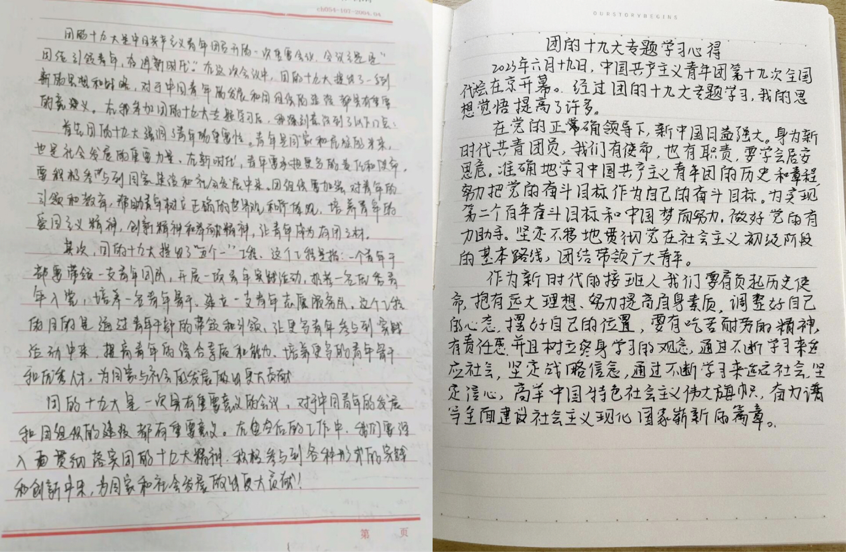 团的十九大是中国共产主义青年团召开的一次重要会议,会议主题是“
团结引领青年,奋进新时代”。在这次会议中,团的十九大提出了一系列
新的思想和战略,对于中国青年的发展和团组织的建设都具有重要
的意义。在我参加团的十九大专题学习后,我深刻意识到了以下几点:
首先团的十九大强调了青年的重要性。青年是国家和民族的未来,
也是社会发展的重要力量,在新时代,青年要承担更多的责任和使命,
要积极参与到国家建设和社会发展中来,团组织要加强对青年的
引领和教育,帮助青年树立正确的世界观和价值观,培养青年的
爱国主义精神,创新精神和奉献精神,让青年成为有用之材。
其次,团的十九大提出了“五个一”工程,这个工程是指:一个青年干
部要带领一支青年团队,开展一次青年实践活动,推荐一名优秀青
年入党,培养一名青年骨干,建立一支青年志愿服务队。这个工程
的目的是通过青年干部的带领和引领,让更多青年参与到实践
活动中来,提高青年的综合素质和能力,培养更多的青年骨干
和优秀人才,为国家与社会的发展做出更大贡献
团的十九大是一次具有重要意义的会议,对于中国青年的发展
和团组织的建设都有重要意义。在今后的工作中,我们要深
入贯彻落实团的十九大精神,积极参与到各种形式的实践
和创新中来,为国家和社会发展做出更大贡献!
第 页
团的十九大专题学习心得
2023年六月十九日,中国共产主义青年团第十九次全国
代会在京开幕。经过团的十九大专题学习,我的思
想觉悟提高了许多。
在党的正常确领导下,新中国日益强大。身为新
时代共青团员,我们有使命,也有职责,要学会居安
思危,准确地学习中国共产主义青年团的历史和章程,
努力把党的奋斗目标作为自己的奋斗目标。为实现
第二个百年奋斗目标和中国梦而努力,做好党的有
力助手。坚定不移地贯彻党在社会主义初级阶段
的基本路线,团结带领广大青年。
作为新时代的接班人我们要肩负起历史使
命,抱有远大理想、努力提高自身素质,调整好自己
的心态,摆好自己的位置,要有吃苦耐劳的精神,
有责任感,并且树立终身学习的观念,通过不断学习来适
应社会,坚定战略信念,通过不断学习来适应社会,坚
定信心,高举中国特色社会主义伟大旗帜,奋力谱
写全面建设社会主义现代化国家崭新的篇章。